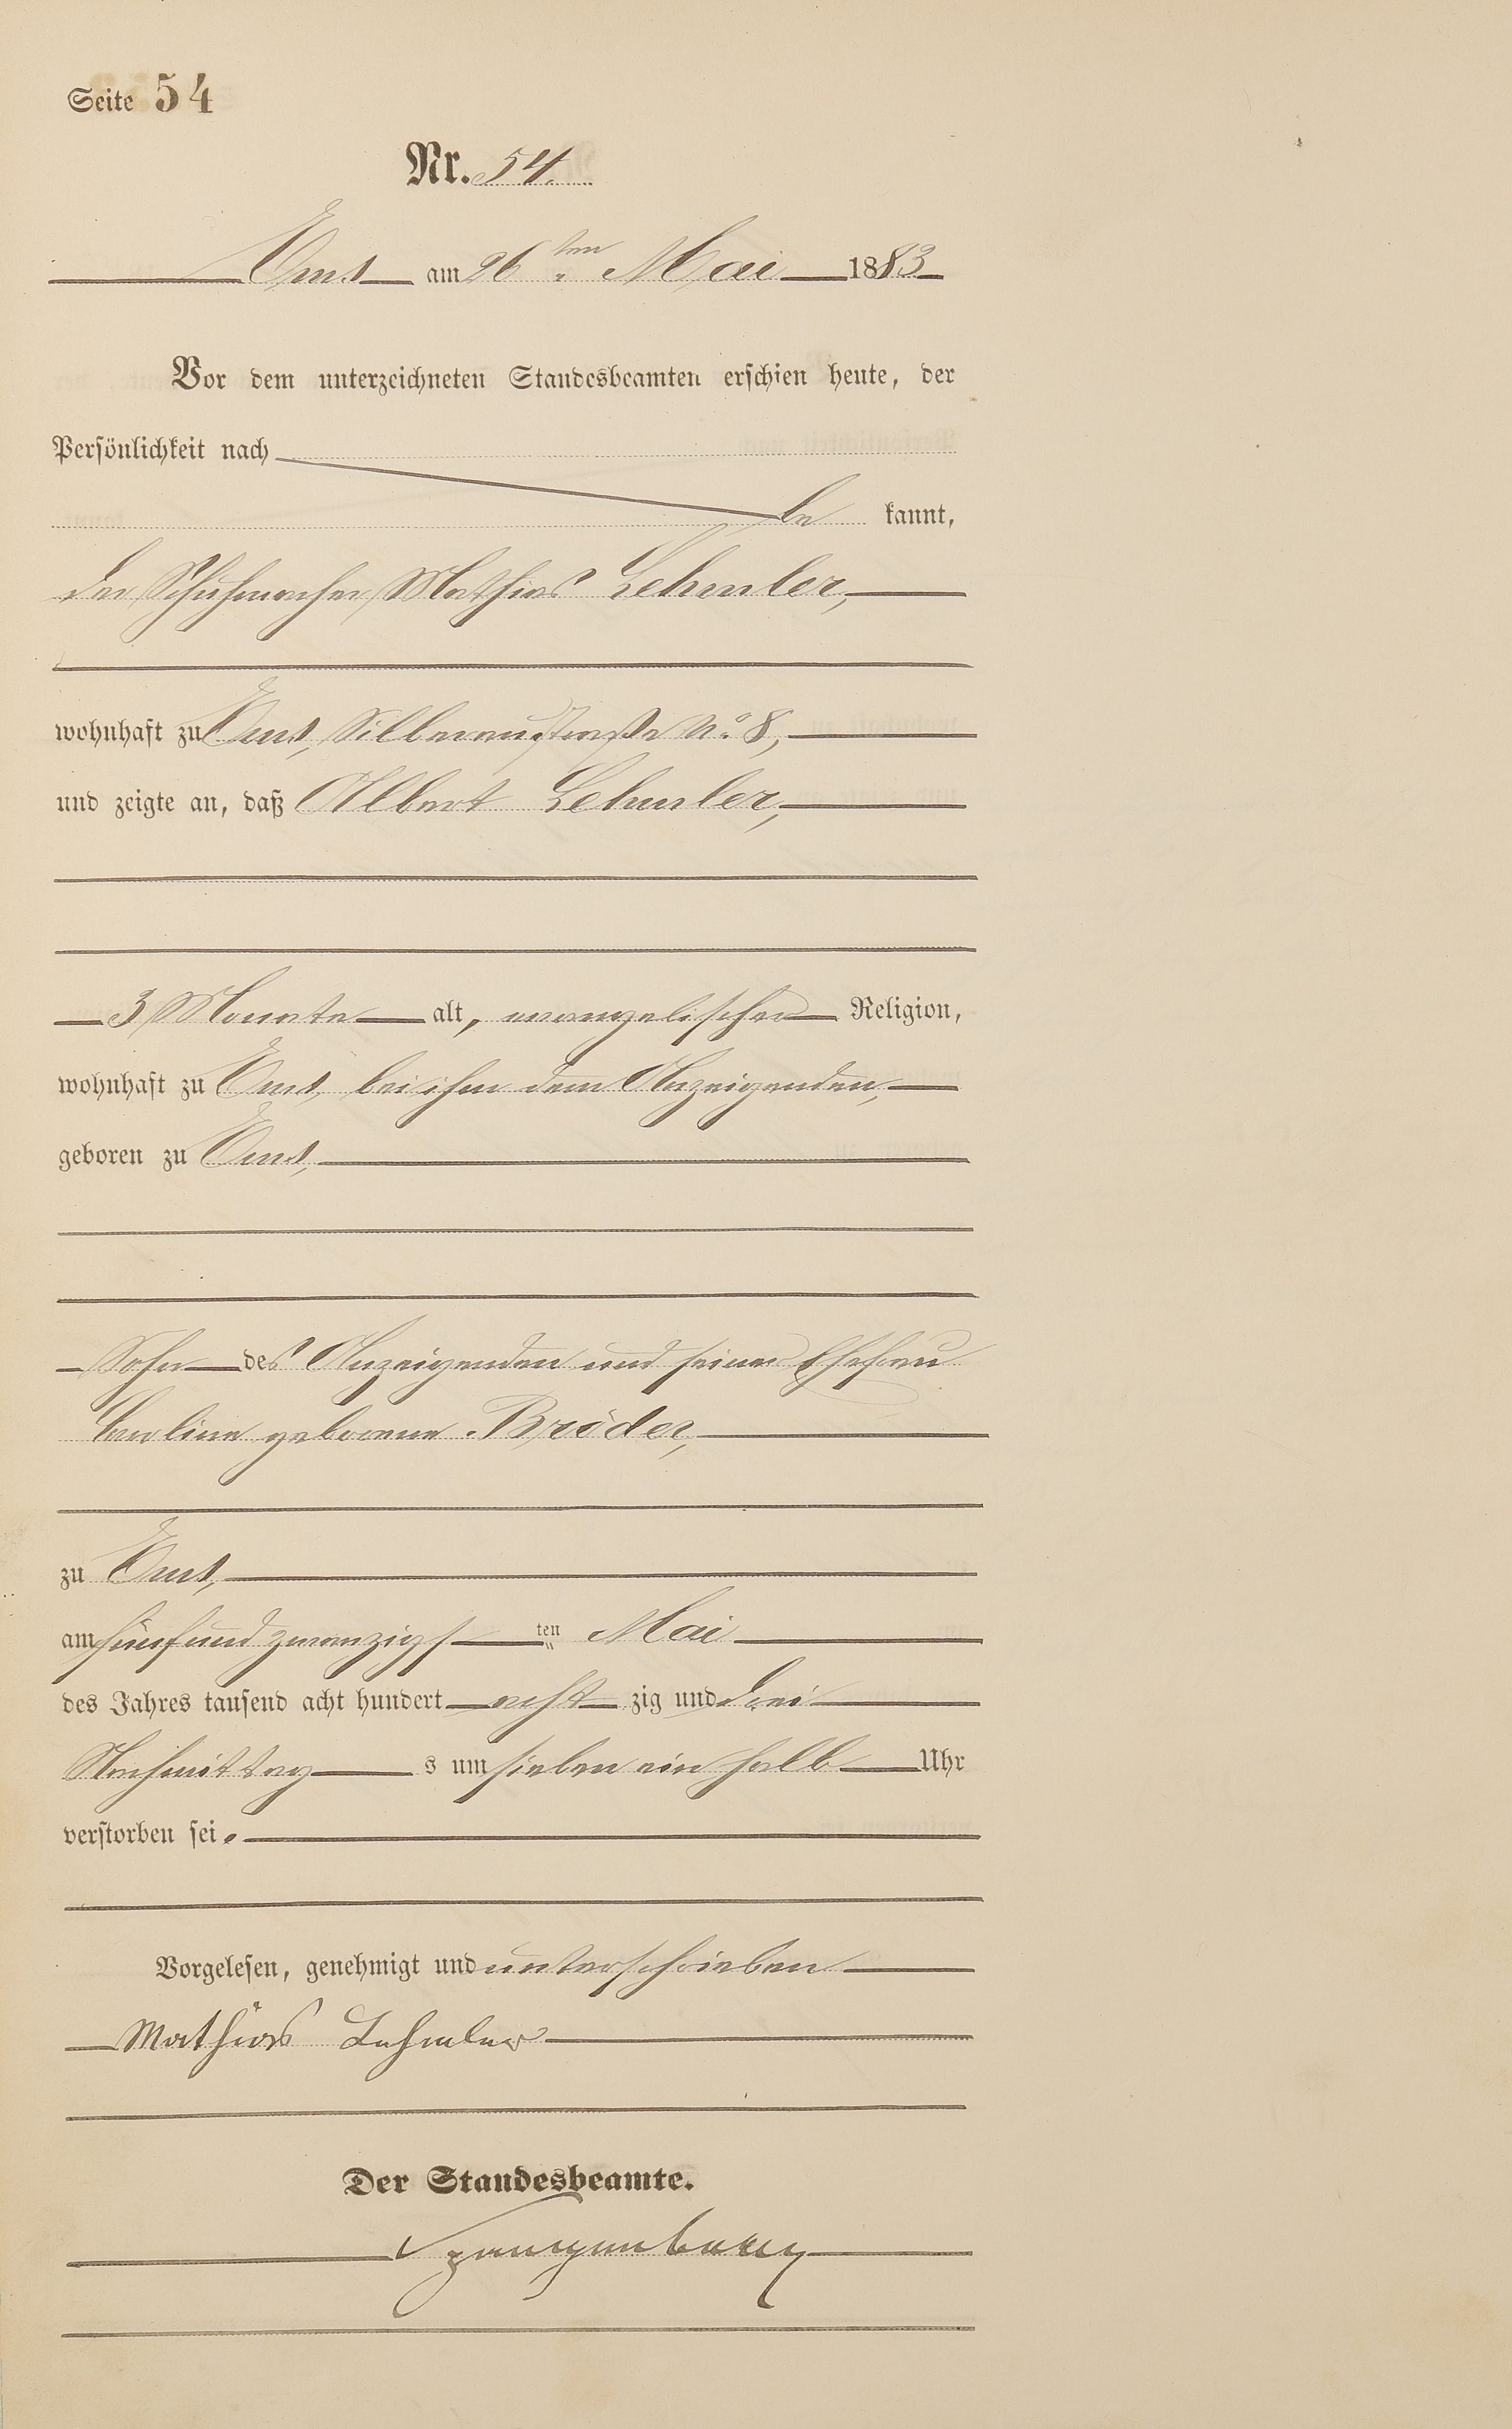 Seite 54
Nr. 54.
Ems am 26ten Mai 1883
Vor dem unterzeichneten Standesbeamten erschien heute, der
Persönlichkeit nach
be kannt,
der Schuhmacher Mathias Lehmler,
wohnhaft zu Ems, Silberaustraße No. 8,
und zeigte an, daß Albert Lehmler,
3 Monate alt, evangelischer Religion,
wohnhaft zu Ems, bei ihm dem Anzeigenden,
geboren zu Ems,
Sohn des Anzeigenden und seiner Ehefrau
Caroline geborene Bröder,
zu Ems,
am fünfundzwanzigsten Mai
des Jahres tausend acht hundert acht zig und drei
Nachmittag s um sieben ein halb Uhr
verstorben sei.
Vorgelesen, genehmigt und unterschrieben
Mathias Lehmler
Der Standesbeamte.
Spangenberg